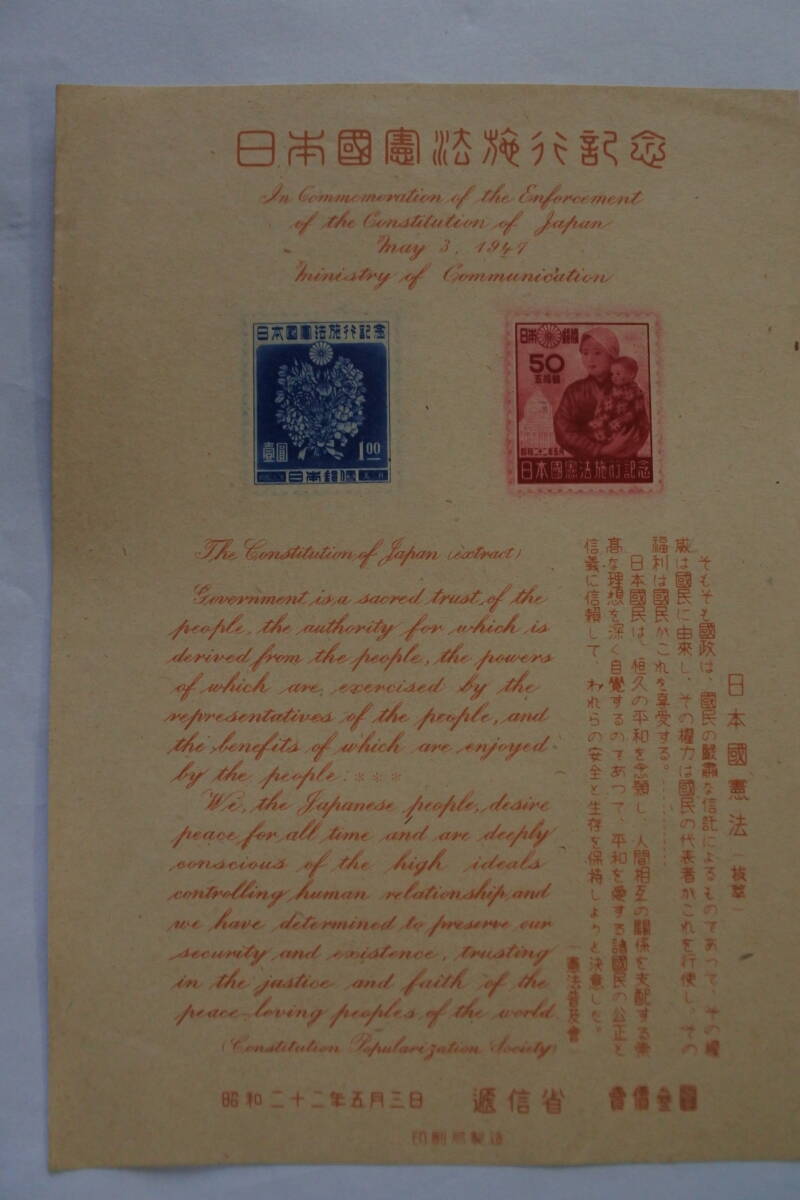 日本國憲法施行記念
In Commemoration of the Enforcement
of the Constitution of Japan
May 3, 1947
Ministry of Communication
日本國憲法施行記念
壹圓
1.00
日本郵便
日本郵便
50
五拾錢
昭和二十二年五月
日本國憲法施行記念
The Constitution of Japan (extract)
Government is a sacred trust of the
people, the authority for which is
derived from the people, the powers
of which are exercised by the
representatives of the people, and
the benefits of which are enjoyed
by the people. ✳✳✳
We, the Japanese people, desire
peace for all time and are deeply
conscious of the high ideals
controlling human relationship, and
we have determined to preserve our
security and existence, trusting
in the justice and faith of the
peace-loving peoples of the world.
(Constitution Popularization Society)
日本國憲法(拔萃)
そもそも國政は、國民の嚴肅な信託によるものであつて、その權
威は國民に由來し、その權力は國民の代表者がこれを行使し、その
福利は國民がこれを享受する。………
日本國民は、恒久の平和を念願し、人間相互の關係を支配する崇
高な理想を深く自覺するのであつて、平和を愛する諸國民の公正と
信義に信賴して、われらの安全と生存を保持しようと決意した。
(憲法普及會)
昭和二十二年五月三日 遞信省 賣價參圓
印刷局製造